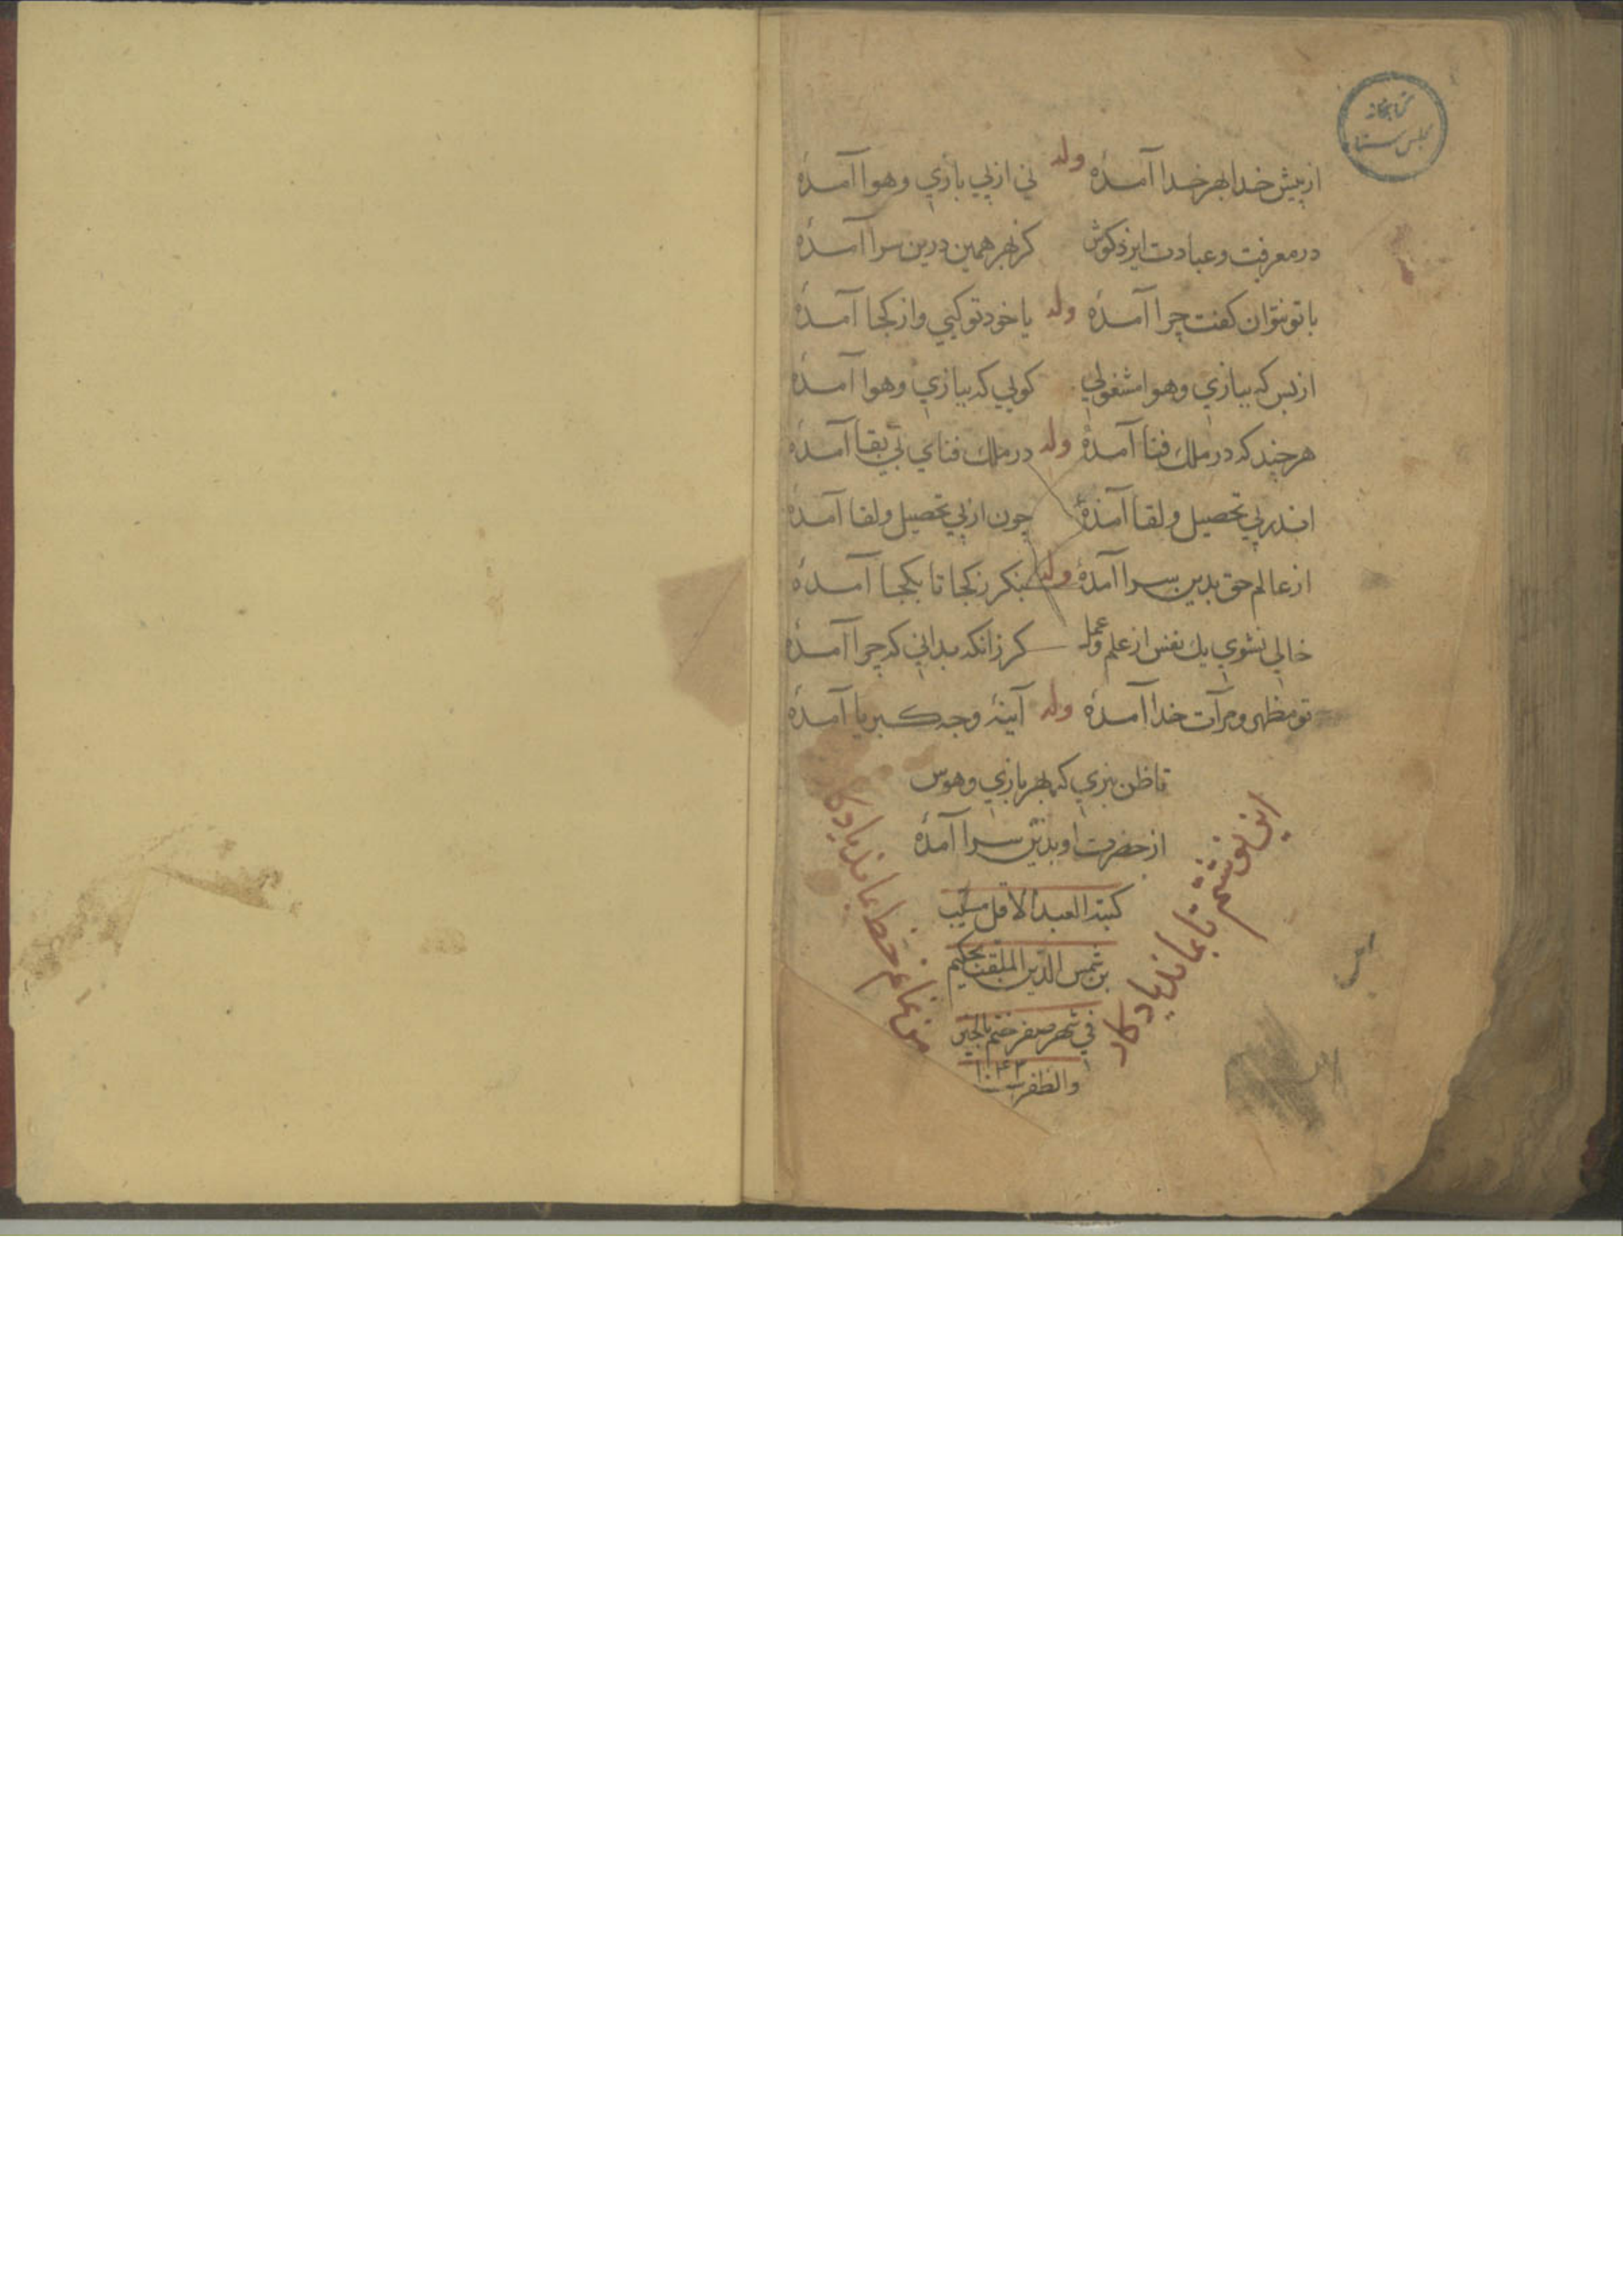 کتابخانه
مجلس سنا
از پیش خدا بهر خدا آمدهٔ وله نی از پی بازی و هوا آمدهٔ
در معرفت و عبادت ایزد کوش کز بهر همین درین سرا آمدهٔ
با تو نتوان کفت چرا آمدهٔ وله یا خود تو کیی و از کجا آمدهٔ
از بس که ببازی و هوا مشغولی کویی که ببازی و هوا آمدهٔ
هر چند که در ملک فنا آمدهٔ وله در ملک فنای بی بقا آمدهٔ
اندر پی تحصیل و لقا آمدهٔ چون از پی تحصیل و لقا آمدهٔ
از عالم حق بدین سرا آمدهٔ وله بنکر ز کجا تا بکجا آمدهٔ
خالی نشوی یک نفس از علم و عمل کر زانکه بدانی که چرا آمدهٔ
تو مظهر و مرآت خدا آمدهٔ وله آینهٔ وجه کبریا آمدهٔ
تا ظن نبری که بهر بازی و هوس
از حضرت او بدین سرا آمدهٔ
کتبه العبد الاقل
بن شمس الدین الملقب بحکیم
فی شهر صفر ختم بالخیر
والظفر ۱۰۴۳
این نوشتم تا بماند یادکار
من نمانم خط بماند یادکار